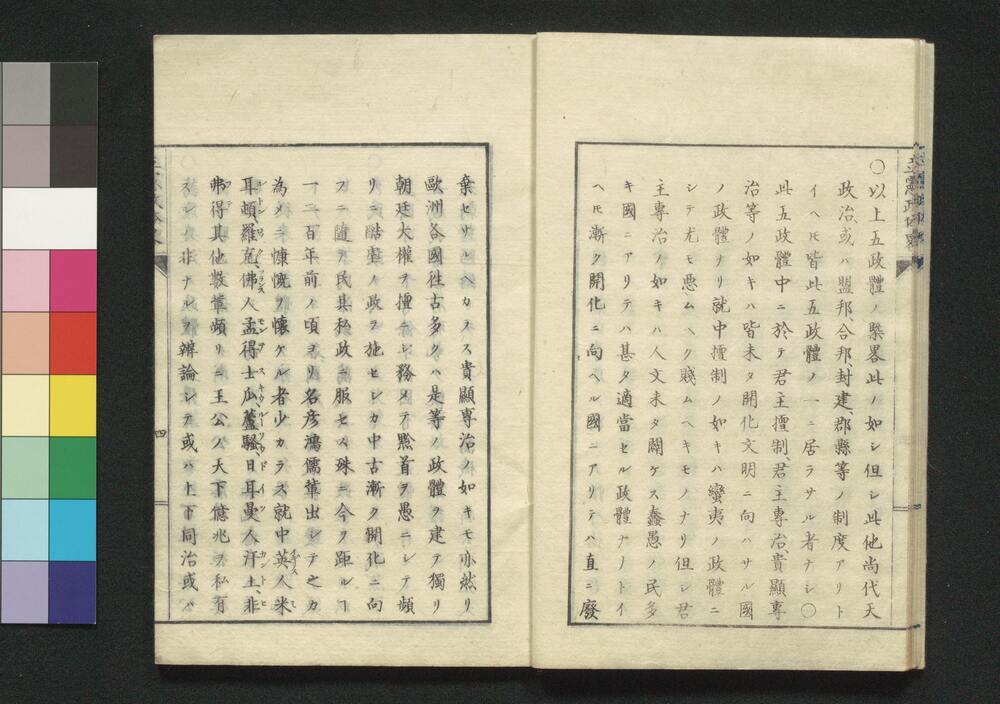 〇以上五政體ノ槩畧此ノ如シ但シ此他尚代天
政治、或ハ盟邦、合邦封建、郡縣等ノ制度アリト
イヘㇳモ皆此五政體ノ一ニ居ラサル者ナシ〇
此五政體中ニ於テ君主擅制、君主專治、貴顯專
治等ノ如キハ皆未タ開化文明ニ向ハサル國
ノ政體ナリ就中擅制ノ如キハ蠻夷ノ政體ニ
シテ尤モ惡ムヘク賤ムヘキモノナリ但シ君
主專治ノ如キハ人文未タ闢ケス蠢愚ノ民多
キ國ニアリテハ甚タ適當セル政體ナリトイ
ヘㇳモ漸ク開化ニ向ヘル國ニアリテハ直ニ廢
棄セサルヘカラス貴顯專治ノ如キモ亦然リ
歐洲各國徃古多クハ是等ノ政體ヲ建テ獨リ
朝廷大權ヲ擅ニシ務メテ黔首ヲ愚ニシテ頻
リニ酷虐ノ政ヲ施セシカ中古漸ク開化ニ向
フニ隨ヒ民其私政ニ服セス殊ニ今ヲ距ルヿ
一二百年前ノ頃ヨリ名彦鴻儒輩出シテ之カ
為メニ慷慨ヲ懷ケル者少カラス就中英人米
耳頓、羅克、佛人孟得士瓜、蘆騷、日耳曼人汗土、非
弗得其他數輩頻リニ王公ノ天下億兆ヲ私有
スルノ非ナルヲ辨論シテ或ハ上下同治或ハ
四